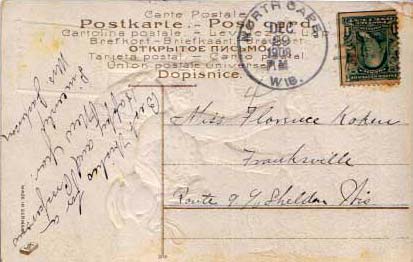 Carte Postale
Postkarte - Post card
Cartolina postale - Levelező-Lap
Brefkort - Briefkaart
ОТКРЫТОЕ ПИСЬМО
Tarjeta postal - Carte postal
Union postale universelle
Dopisnice.
NORTH CAPE,
DEC
29
1908
P.M.
WIS.
Best Wishes for a
Happy New
Sincerely
Miss Florence
Franksville
Route 9 Sheldon Wis
MADE IN GERMANY